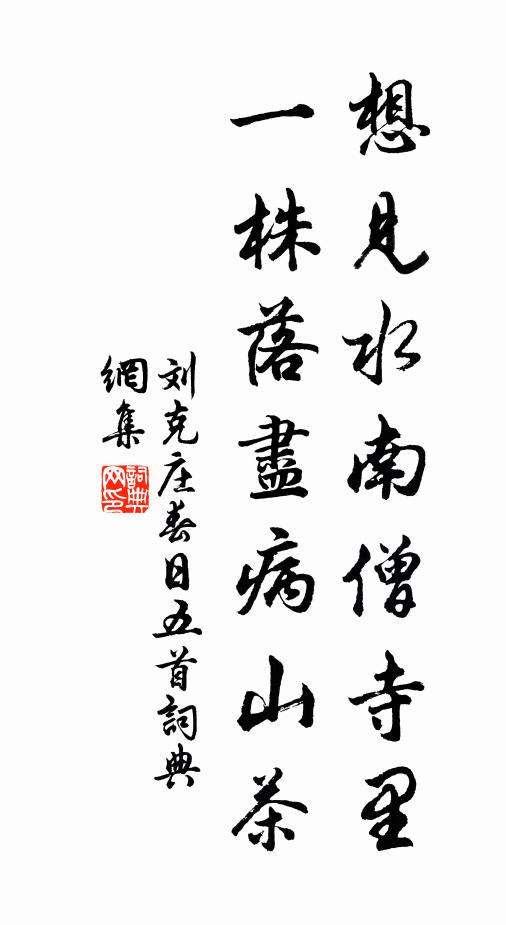 想見水南僧寺里
一株落盡病山茶
刘克庄春日五首詞典
網集
詞典
网印